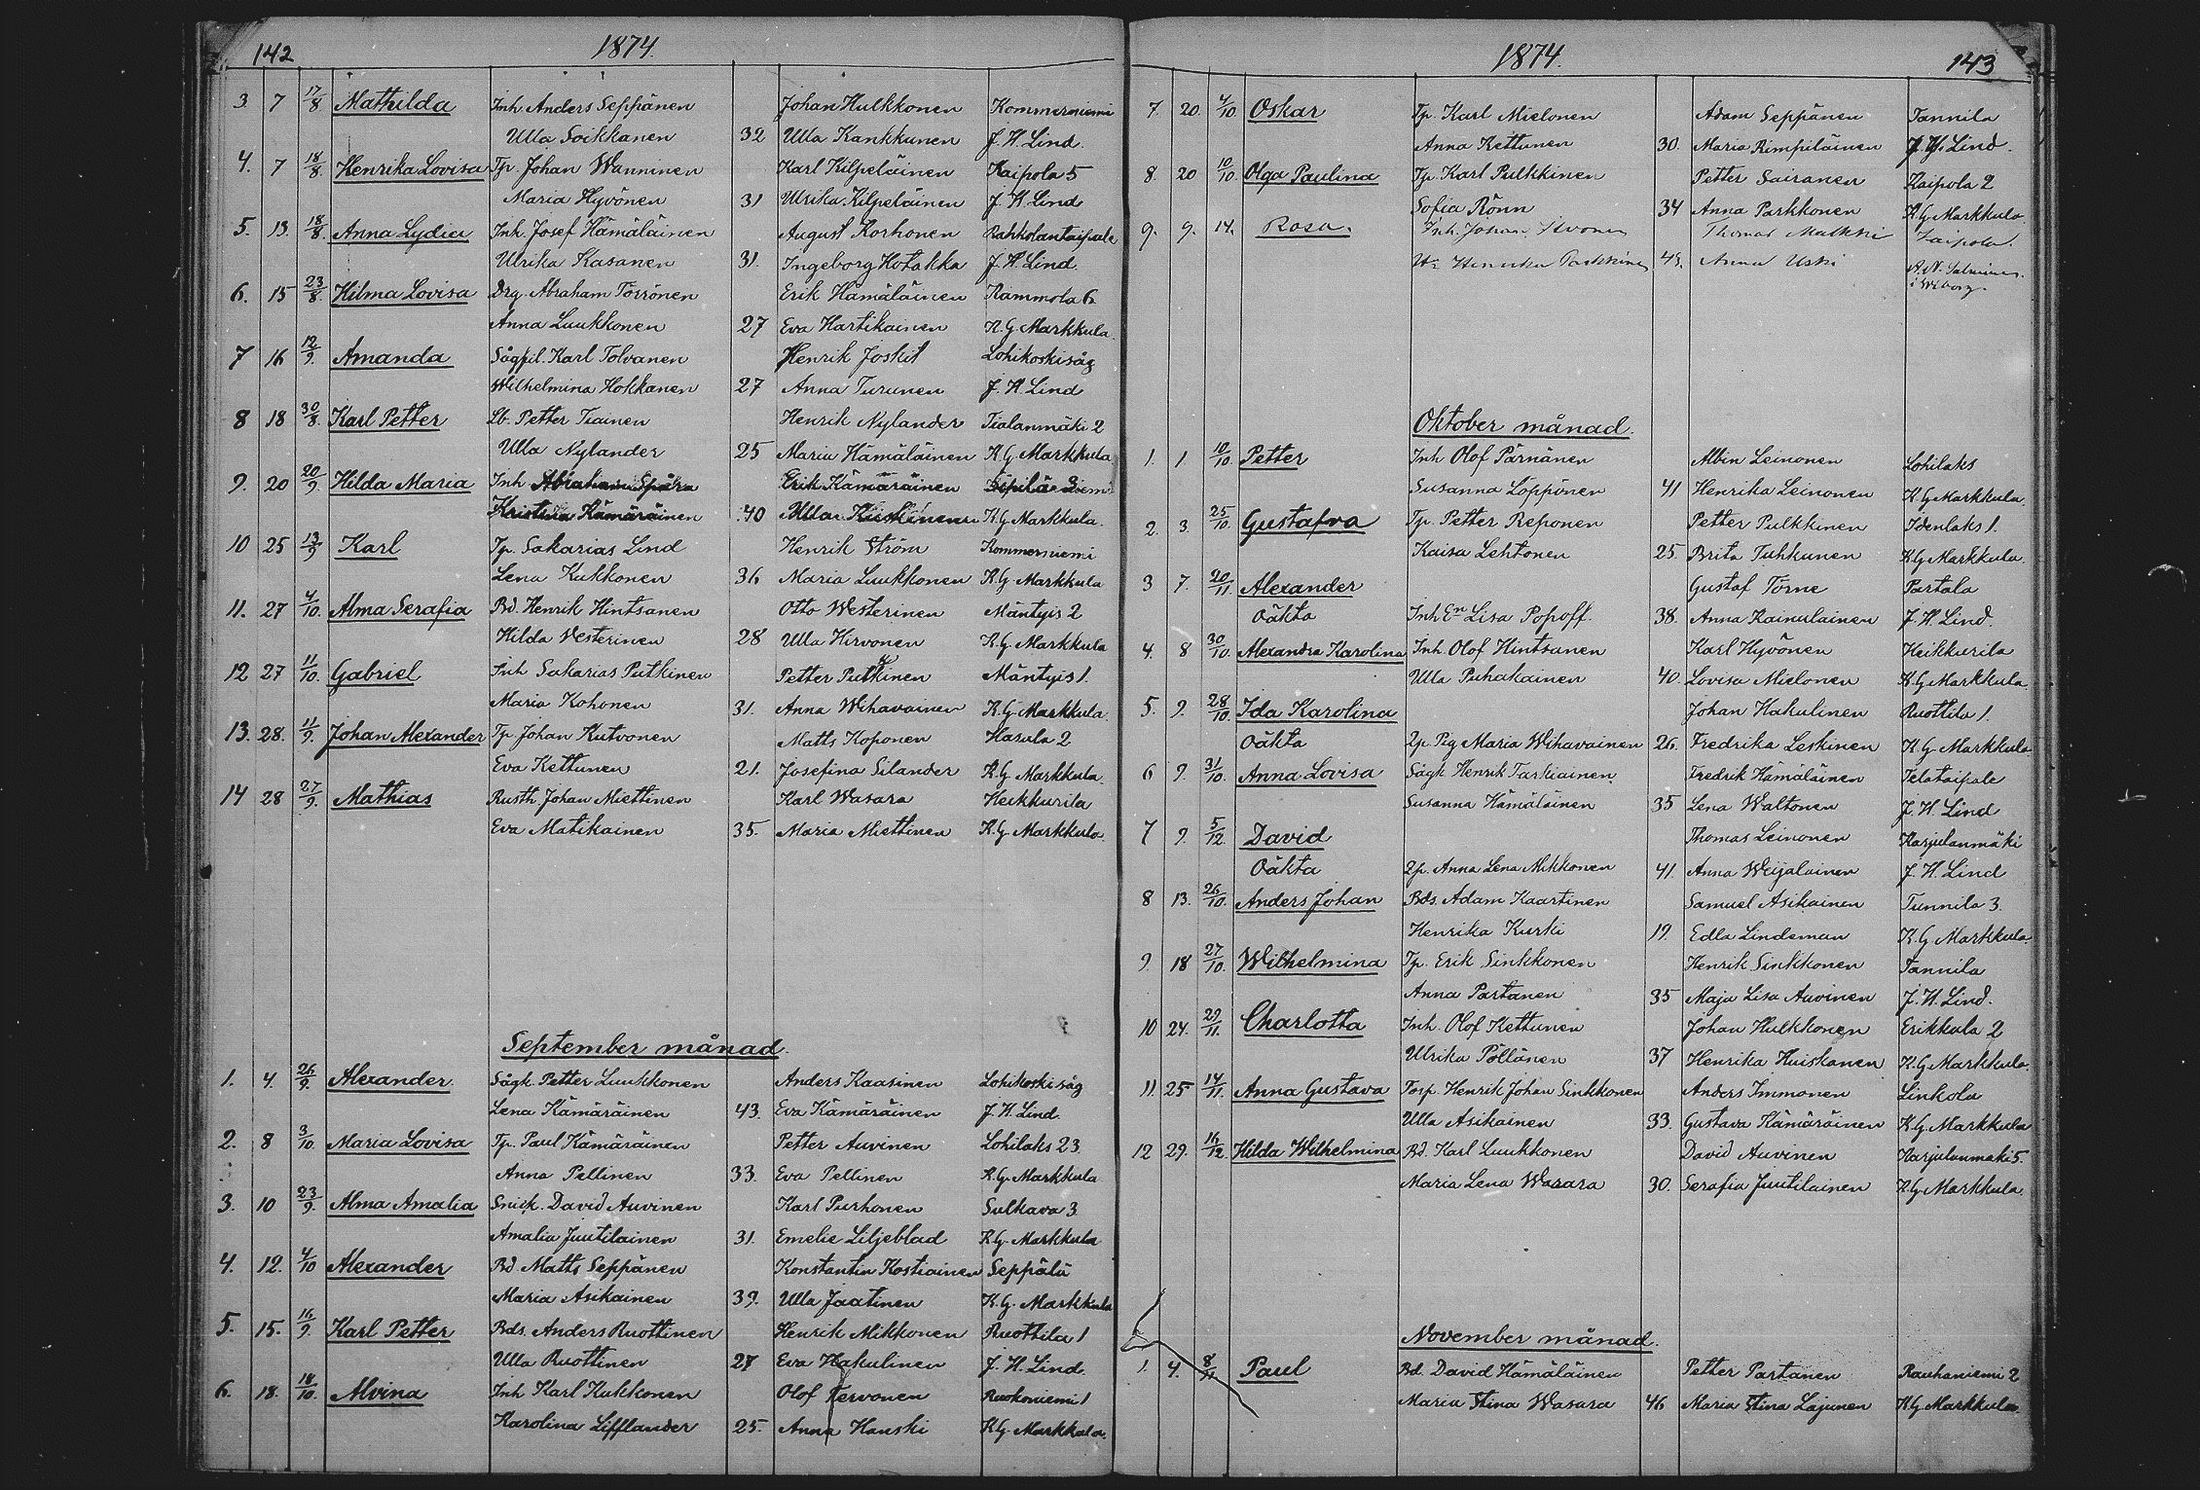 142 1874.
3 7 17/8 Mathilda Inh Anders Seppänen Johan Hulkkonen Kommerniemi
Ulla Soikkanen 32 Ulla Kankkunen J. H. Lind.
4. 7 18/8 Henrika Lovisa Tp. Johan Wanninen Karl Kilpeläinen Kaipola 5
Maria Hyvönen 31 Ulrika Kilpeläinen J. H. Lind
5. 13. 18/8. Anna Lydia Inh. Josef Hämäläinen August Korhonen Rahkolantaipale
Ulrika Kasanen 31. Ingeborg Hotakka J. H. Lind.
6. 15 23/8. Hilma Lovisa Drg. Abraham Törrönen Erik Hämäläinen Kammola 6
Anna Luukkonen 27 Eva Hartikainen K. G. Markkula.
7 16 12/9. Amanda Sågfil. Karl Tolvanen Henrik Joskit Lohikoski såg
Wilhelmina Hokkanen 27 Anna Turunen J. H. Lind
8 18 30/8. Karl Petter Lb. Petter Tiainen Henrik Nylander Tialanmäki 2
Ulla Nylander 25 Maria Hämäläinen K. G. Markkula
9. 20 20/9. Hilda Maria Inh Abraham Erik Kämäräinen
Kristina Kämäräinen 40 Ulla K. G. Markkula.
10 25 13/9 Karl Tp. Sakarias Lind Henrik Ström Kommerniemi
Lena Kukkonen 36 Maria Luukkonen K. G. Markkula
11. 27 4/10. Alma Serafia Bd. Henrik Hintsanen Otto Westerinen Mäntyis 2
Hilda Vesterinen 28 Ulla Hirvonen K. G. Markkula
12 27 11/10. Gabriel Inh Sakarias Putkinen Petter Putkinen Mäntyis 1.
Maria Kohonen 31. Anna Wihavainen K. G. Markkula.
13. 28. 11/9. Johan Alexander Tp. Johan Kutvonen Matts Koponen Hasula 2
Eva Kettunen 21. Josefina Silander K. G. Markkula.
14 28 27/9. Mathias Rusth Johan Miettinen Karl Wasara Heikkurila
Eva Matikainen 35. Maria Miettinen K. G. Markkula.
September månad.
1. 4. 26/9. Alexander. Sågk. Petter Luukkonen Anders Kaasinen Lohikoski såg
Lena Kämäräinen 43. Eva Kämäräinen J. H. Lind.
2. 8 3/10. Maria Lovisa Tp. Paul Kämäräinen Petter Auvinen Lohilaks 23
Anna Pellinen 33. Eva Pellinen K. G. Markkula
3. 10 23/9. Alma Amalia Snick. David Auvinen Karl Purhonen Sulkava 3
Amalia Juutilainen 31. Emelie Liljeblad K. G. Markkula
4. 12. 4/10 Alexander Bd Matts Seppänen Konstantin Kostiainen Seppälä
Maria Asikainen 39. Ulla Jaatinen K. G. Markkula
5. 15. 16/9. Karl Petter Bds. Anders Ruottinen Henrik Mikkonen Ruottila 1
Ulla Ruottinen 27 Eva Hakulinen J. H. Lind.
6. 18. 18/10. Alvina Inh Karl Kukkonen Olof Tervonen Ruokoniemi 1
Karolina Lifflander 25. Anna Hauski K. G. Markkula.
1874. 143
7. 20. 4/10. Oskar Tp. Karl Mielonen Adam Seppänen Tannila
Anna Kettunen 30. Maria Rimpiläinen J. H. Lind.
8. 20 10/10. Olga Paulina Tp. Karl Pulkkinen Petter Sairanen Kaipola 2
Sofia Rönn 34 Anna Parkkonen K. G. Markkula
9. 9. 14. Rosa. Inh. Johan Thomas Malkki Kaipola.
Henrika Parkkinen 43. Anna Uski A. N. Salminen
i Wiborg.
Oktober månad.
1. 1 10/10. Petter Inh Olof Pärnänen Albin Leinonen Lohilaks
Susanna Löppönen 41 Henrika Leinonen K. G. Markkula.
2. 3 25/10. Gustafva Tp. Petter Reponen Petter Pulkkinen Idenlaks 1.
Kaisa Lehtonen 25. Brita Tuhkunen K. G. Markkula.
3 7. 20/11. Alexander Gustaf Törne Partala
Oäkta Inh En Lisa Popoff. 38. Anna Kainulainen J. H. Lind.
4. 8 30/10. Alexandra Karolina Inh. Olof Hintsanen Karl Hyvönen Heikkurila
Ulla Puhakainen 40. Lovisa Mielonen K. G. Markkula.
5. 9. 28/10. Ida Karolina Johan Hakulinen Ruottila 1.
Oäkta Lp. Pig Maria Wihavainen 26. Fredrika Leskinen K. G. Markkula
6 9. 31/10. Anna Lovisa Sågk Henrik Tarkiainen Fredrik Hämäläinen Telataipale
Susanna Hämäläinen 35 Lena Waltonen J. H. Lind
7 9. 5/12. David Thomas Leinonen Karjulanmäki
Oäkta Lp. Anna Lena Mikkonen 41. Anna Weijalainen J. H. Lind
8 13. 26/10. Anders Johan Bds. Adam Kaartinen Samuel Asikainen Tunnila 3.
Henrika Kurki 19. Edla Lindeman K. G. Markkula.
9. 18 27/10. Wilhelmina Tp. Erik Sinkkonen Henrik Sinkkonen Tannila
Anna Partanen 35 Maja Lisa Auvinen J. H. Lind.
10 24. 29/11. Charlotta Inh. Olof Kettunen Johan Hulkkonen Erikkula 2
Ulrika Pöllänen 37 Henrika Huiskanen K. G. Markkula.
11. 25 14/11. Anna Gustava Torp. Henrik Johan Sinkkonen Anders Immonen Linkola
Ulla Asikainen 33. Gustava Kämäräinen K. G. Markkula
12 29. 16/12. Hilda Wilhelmina Bd. Karl Luukkonen David Auvinen Karjulanmäki 5.
Maria Lena Wasara 30. Serafia Juutilainen K. G. Markkula.
November månad.
1. 4. 8/11 Paul Bd. David Hämäläinen Petter Partanen Rauhaniemi 2
Maria Stina Wasara 46 Maria Stina Lajunen K. G. Markkula.